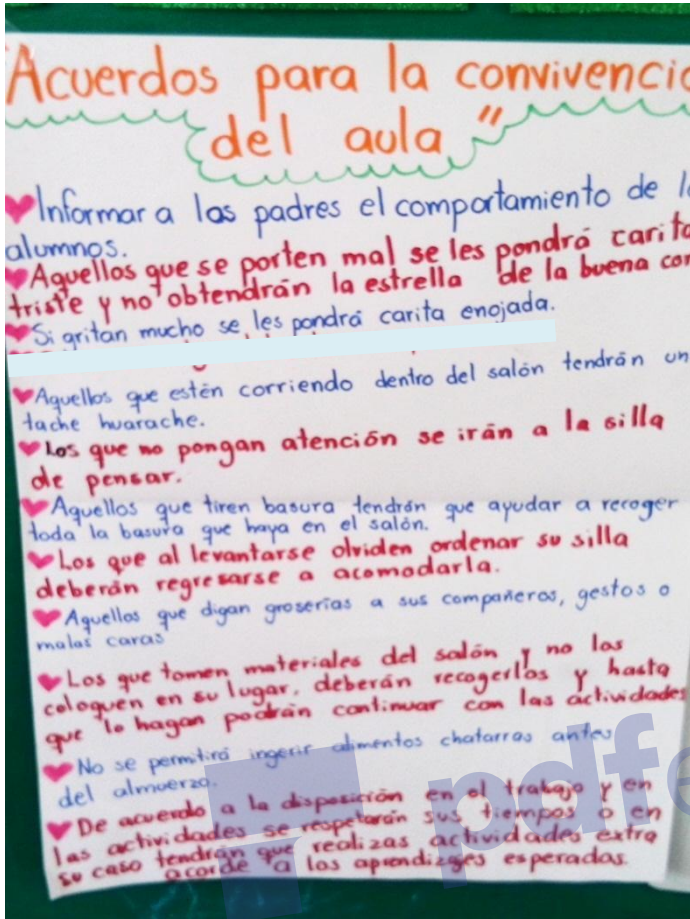 "Acuerdos para la convivencia
del aula"
Informar a los padres el comportamiento de l
alumnos.
Aquellos que se porten mal se les pondrá carita
triste y no obtendrán la estrella de la buena con
Si gritan mucho se les pondrá carita enojada.
Aquellos que estén corriendo dentro del salón tendrán un
tache huarache.
Los que no pongan atención se irán a la silla
de pensar.
Aquellos que tiren basura tendrán que ayudar a recoger
toda la basura que haya en el salón.
Los que al levantarse olviden ordenar su silla
deberán regresarse a acomodarla.
Aquellos que digan groserías a sus compañeros, gestos o
malas caras
Los que tomen materiales del salón y no los
coloquen en su lugar, deberán recogerlos y hasta
que lo hagan podrán continuar con las actividades
No se permitirá ingerir alimentos chatarras antes
del almuerzo.
De acuerdo a la disposición en el trabajo y en
las actividades se respetarán sus tiempos o en
su caso tendrán que realizas actividades extra
acorde a los aprendizajes esperados.
pdfe